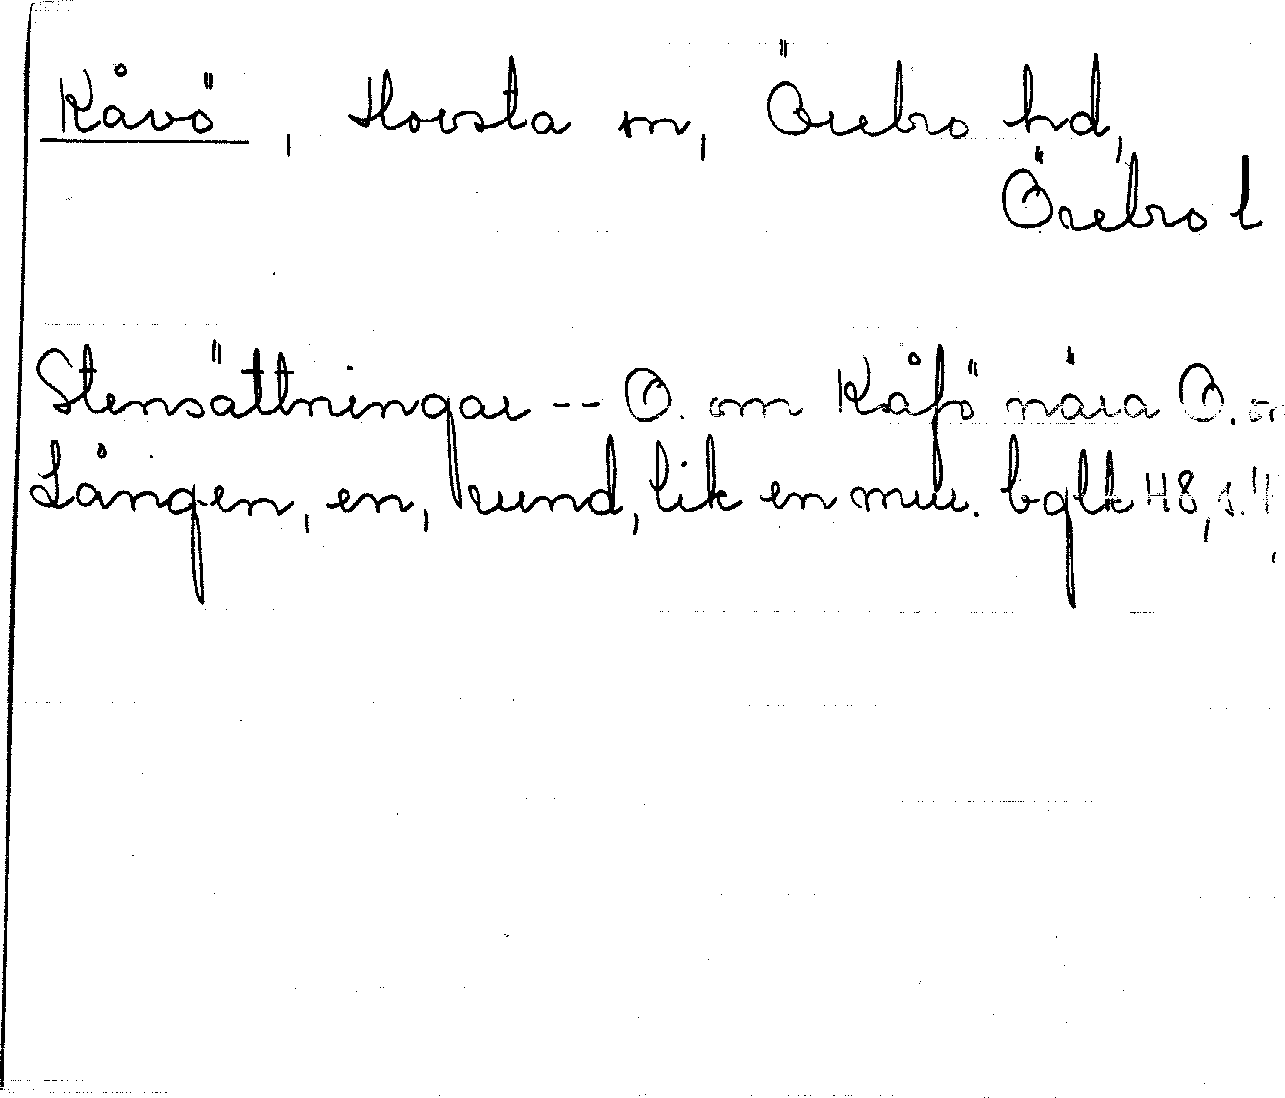 Kåvö, Hovsta sn, Örebro hd,
Örebro l
Stensättningar -- Ö. om Kåfö nära Ö. om
Lången, en, rund, lik en mur. bglk 48, s. 4